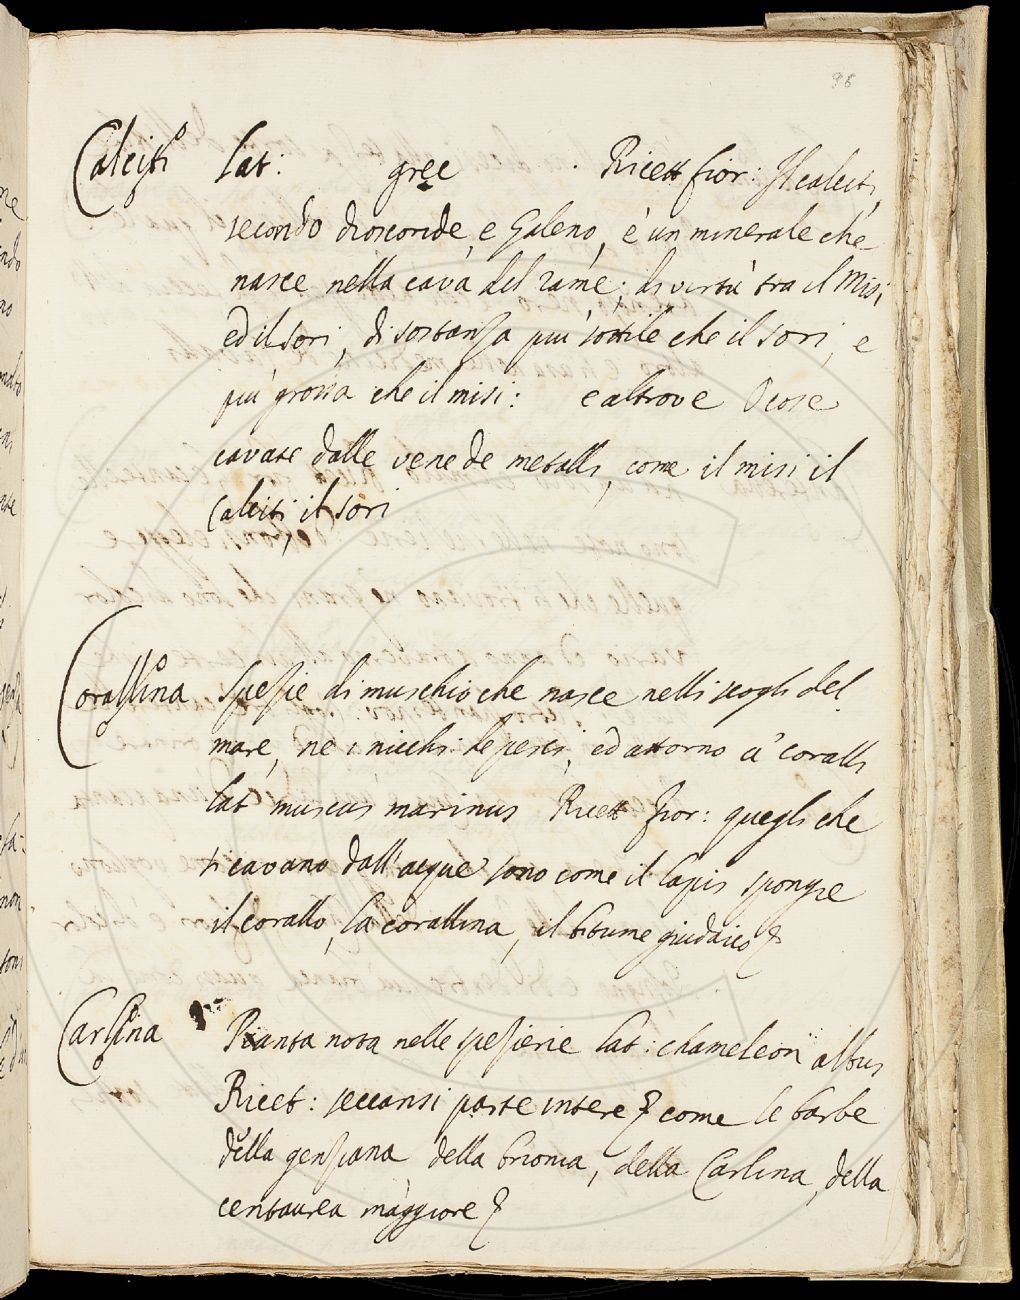 96
Calciti lat: grec Ricett fior: Il calciti,
secondo dioscoride, e Galeno, è un minerale che
nasce nella cava del rame; di virtù tra il Misi,
ed il sori, di sostanza più sottile che il sori, e
più grossa che il misi: e altrove O cose
cavate dalle vene de metalli, come il misi il
Calciti, il sori
Corallina Spezie di muschio che nasce nelli scogli del
mare, ne i nicchi de pesci, ed attorno a' coralli
lat muscus marinus Ricett fior: quegli che
si cavano dall'acque sono come il lapis spongie
il corallo, la corallina, il bitume giudaico
Carlina Pianta nota nelle spezierie lat: chameleon albus
Ricet: seccansi parte intere come le barbe
della genziana della brionia, della Carlina, della
centaurea maggiore